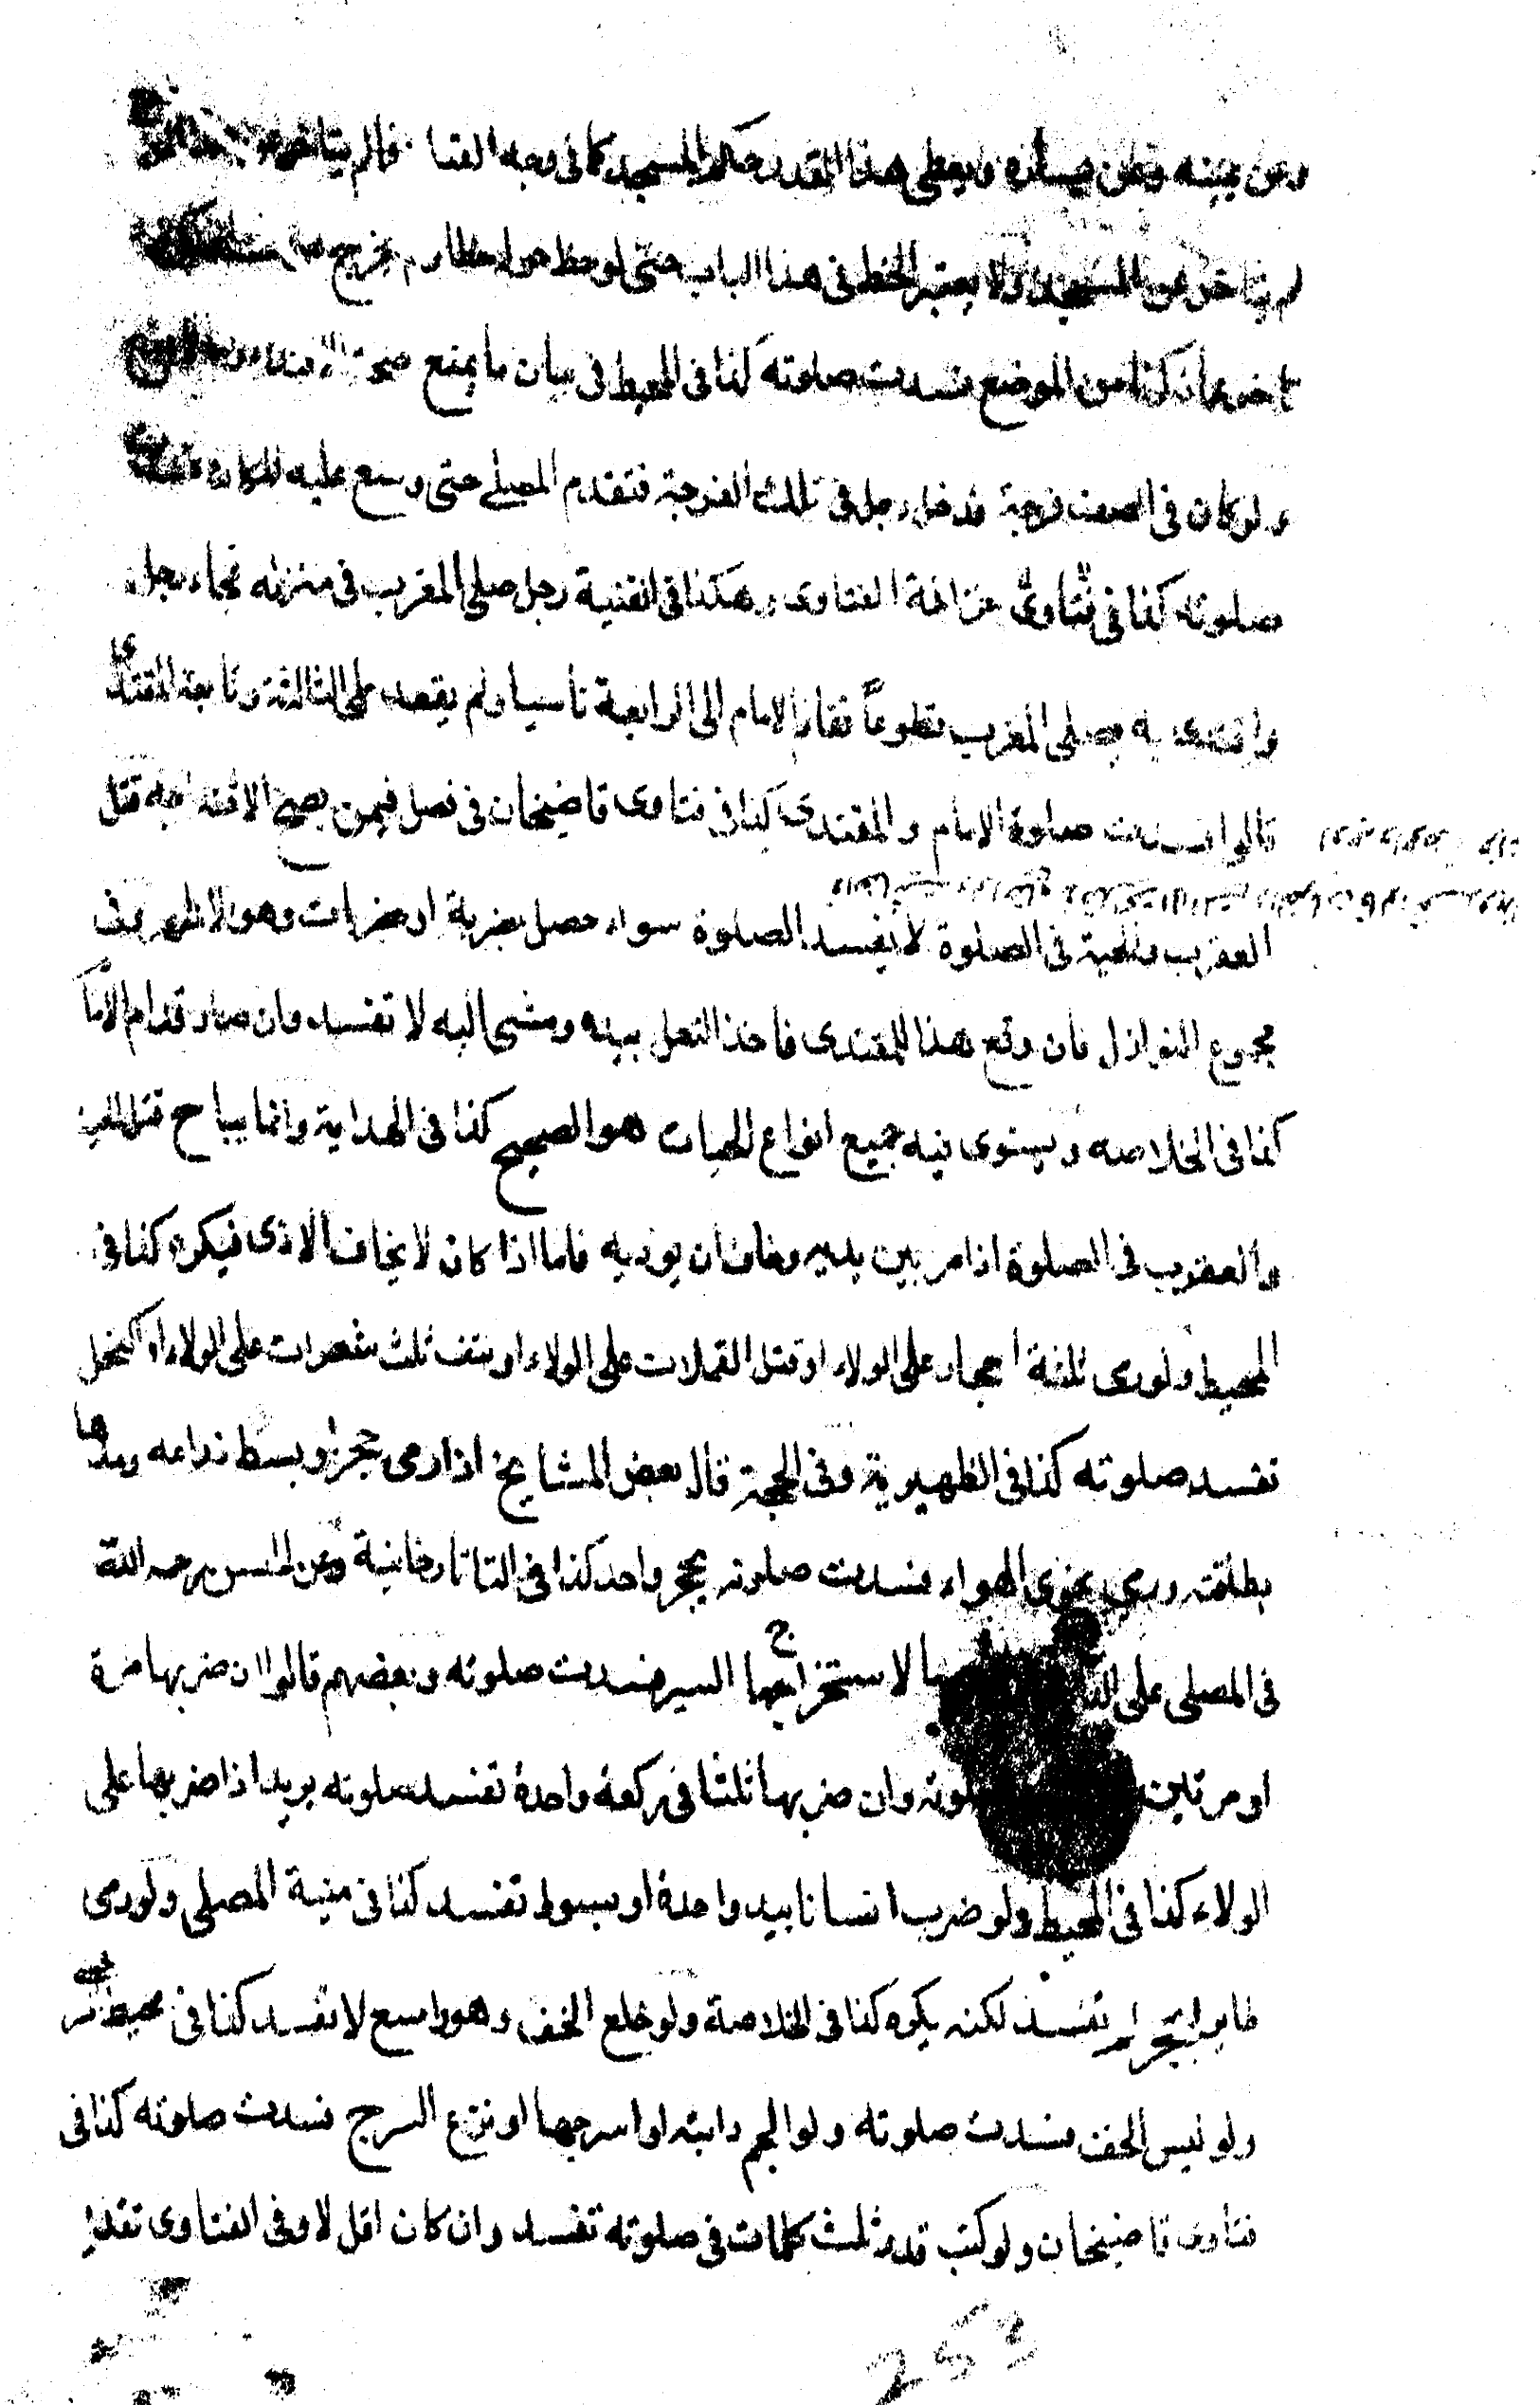 وعن يمينه وعن يساره ويعطى هذا القدر حكم المسجد كما فى وجه القبلة فالم يتأخر
لم يتأخر عن المسجد ولا يعتبر الخط فى هذا الباب حتى لو خط حوله خطا ولم يخرج
ما ذكرنا من الموضع فسدت صلوته كذا فى المحيط فى بيان ما يمنع صحة الاقتداء
ولو كان فى الصف فرجة فدخل رجل فى تلك الفرجة فتقدم المصلى حتى وسع عليه المكان
صلوته كذا فى فتاوى خزانة الفتاوى وهكذا فى القنية رجل صلى المغرب فى منزله فجاء رجل
واقتدى به يصلى المغرب تطوعا فقام الامام الى الرابعة ناسيا ولم يقعد على الثالثة وتابعه المقتدى
قالوا فسدت صلوة الامام والمقتدى كذا فى فتاوى قاضيخان فى فصل فيمن يصح الاقتداء به قتل
العقرب والحية فى الصلوة لا يفسد الصلوة سواء حصل بضربة او ضربات وهو الاظهر وفى
مجموع النوازل فان وقع هذا للمقتدى فاخذ النعل بيده ومشى اليه لا تفسد وان صار قدام الامام
كذا فى الخلاصه ويستوى فيه جميع انواع الحيات هو الصحيح كذا فى الهداية وانما يباح قتل الحية
والعقرب فى الصلوة اذا مر بين يديه وخاف ان يوذيه فاما اذا كان لا يخاف الاذى فيكره كذا فى
المحيط ولو رمى ثلثة احجار على الولاء او قتل القملات على الولاء او نتف ثلث شعرات على الولاء او اكتحل
تفسد صلوته كذا فى الظهيرية وفى الحجة قال بعض المشايخ اذا رمى حجرا وبسط ذراعه ومدها
بطاقته ورمى نحو الهواء فسدت صلوته بحجر واحد كذا فى التاتارخانية وعن الحسن رحمه الله
فى المصلى على الدابة لاستخراجها السير فسدت صلوته وبعضهم قالوا ان ضربها مرة
او مرتين صلوته وان ضربها ثلثا فى ركعة واحدة تفسد صلوته يريد اذا ضربها على
الولاء كذا فى المحيط ولو ضرب انسانا بيد واحدة او بسوط تفسد كذا فى منية المصلى ولو رمى
طايرا بحجر لم تفسد لكنه يكره كذا فى الخلاصة ولو خلع الخف وهو واسع لا تفسد كذا فى محيط
ولو لبس الخف فسدت صلوته ولو الجم دابته او اسرجها او نزع السرج فسدت صلوته كذا فى
فتاوى قاضيخان ولو كتب قدر ثلث كلمات فى صلوته تفسد وان كان اقل لا وفى الفتاوى تقدير
253